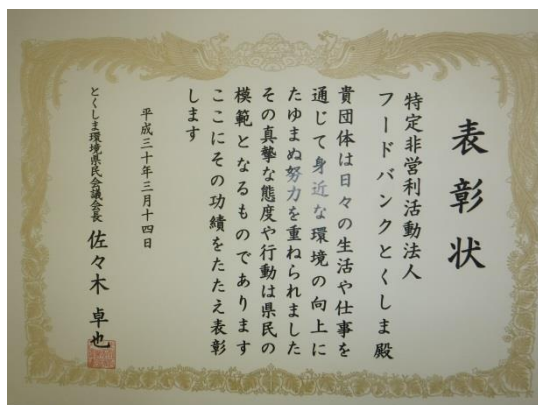 表彰状
特定非営利活動法人
フードバンクとくしま殿
貴団体は日々の生活や仕事を
通じて身近な環境の向上に
たゆまぬ努力を重ねられました
その真摯な態度や行動は県民の
模範となるものであります
ここにその功績をたたえ表彰
します
平成三十年三月十四日
とくしま環境県民会議会長 佐々木卓也